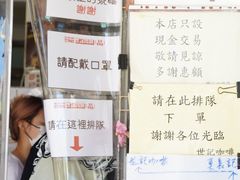 謝謝
請配戴口罩
請在這裡排隊
本店只設
現金交易
敬請見諒
多謝惠顧
請在此排隊
下單
謝謝各位光臨
世記咖啡